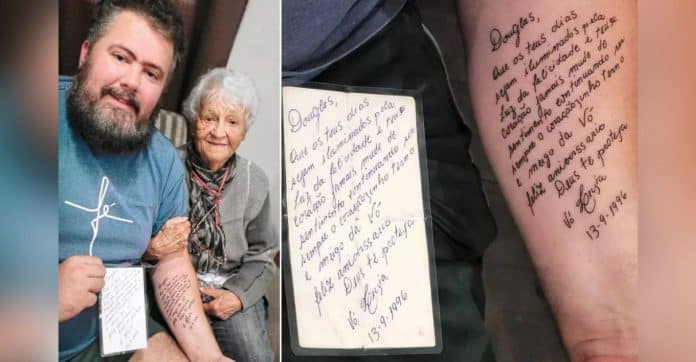 fé
Douglas,
Que os teus dias
sejam iluminados pela
luz da felicidade e teu
coração jamais mude de
sentimento continuando
sempre o coraçãozinho terno
e meigo da Vó
feliz aniversario
Deus te proteja
Vó
13-9-1996
Douglas,
Que os teus dias
sejam iluminados pela
luz da felicidade e teu
coração jamais mude de
sentimento continuando
sempre o coraçãozinho terno
e meigo da Vó
feliz aniversario
Deus te proteja
Vó
13-9-1996